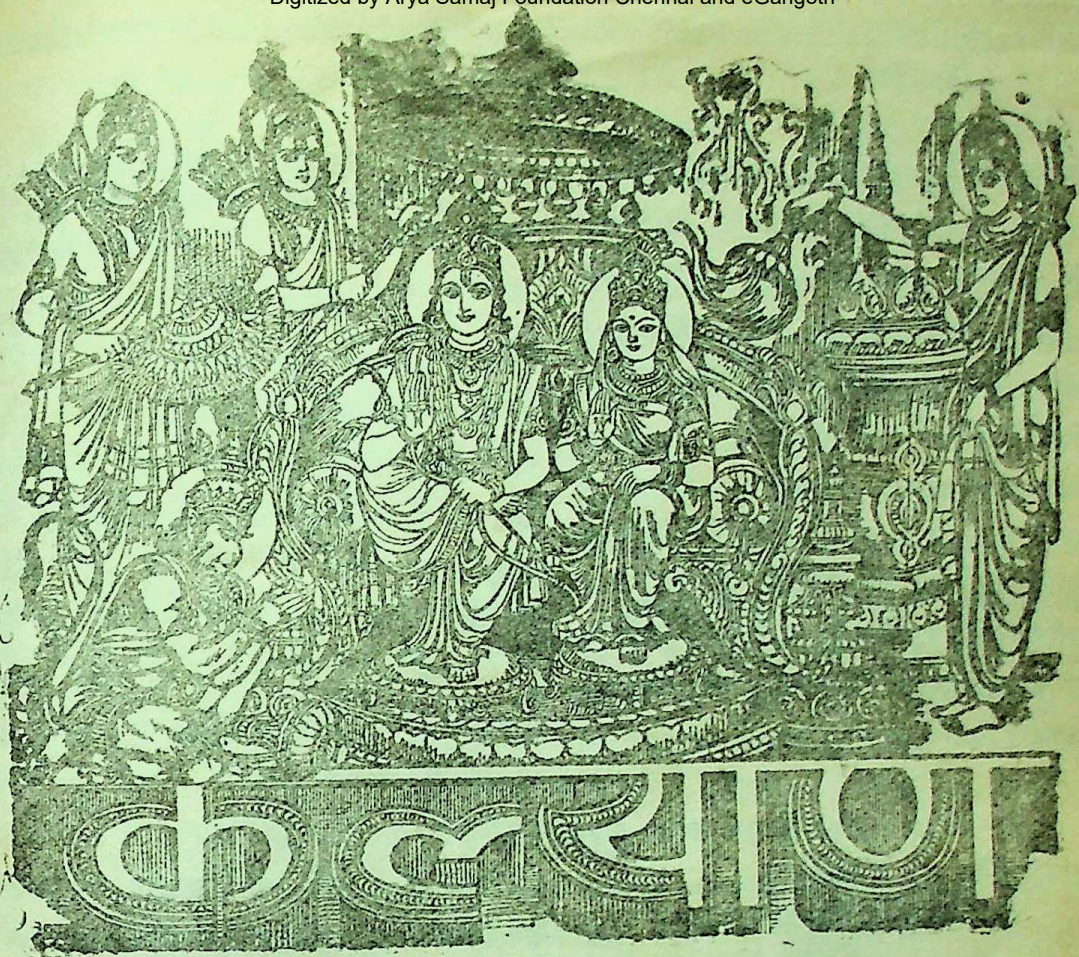 Digitized by Arya Samaj Foundation Chennai and eGangotri
कल्याण